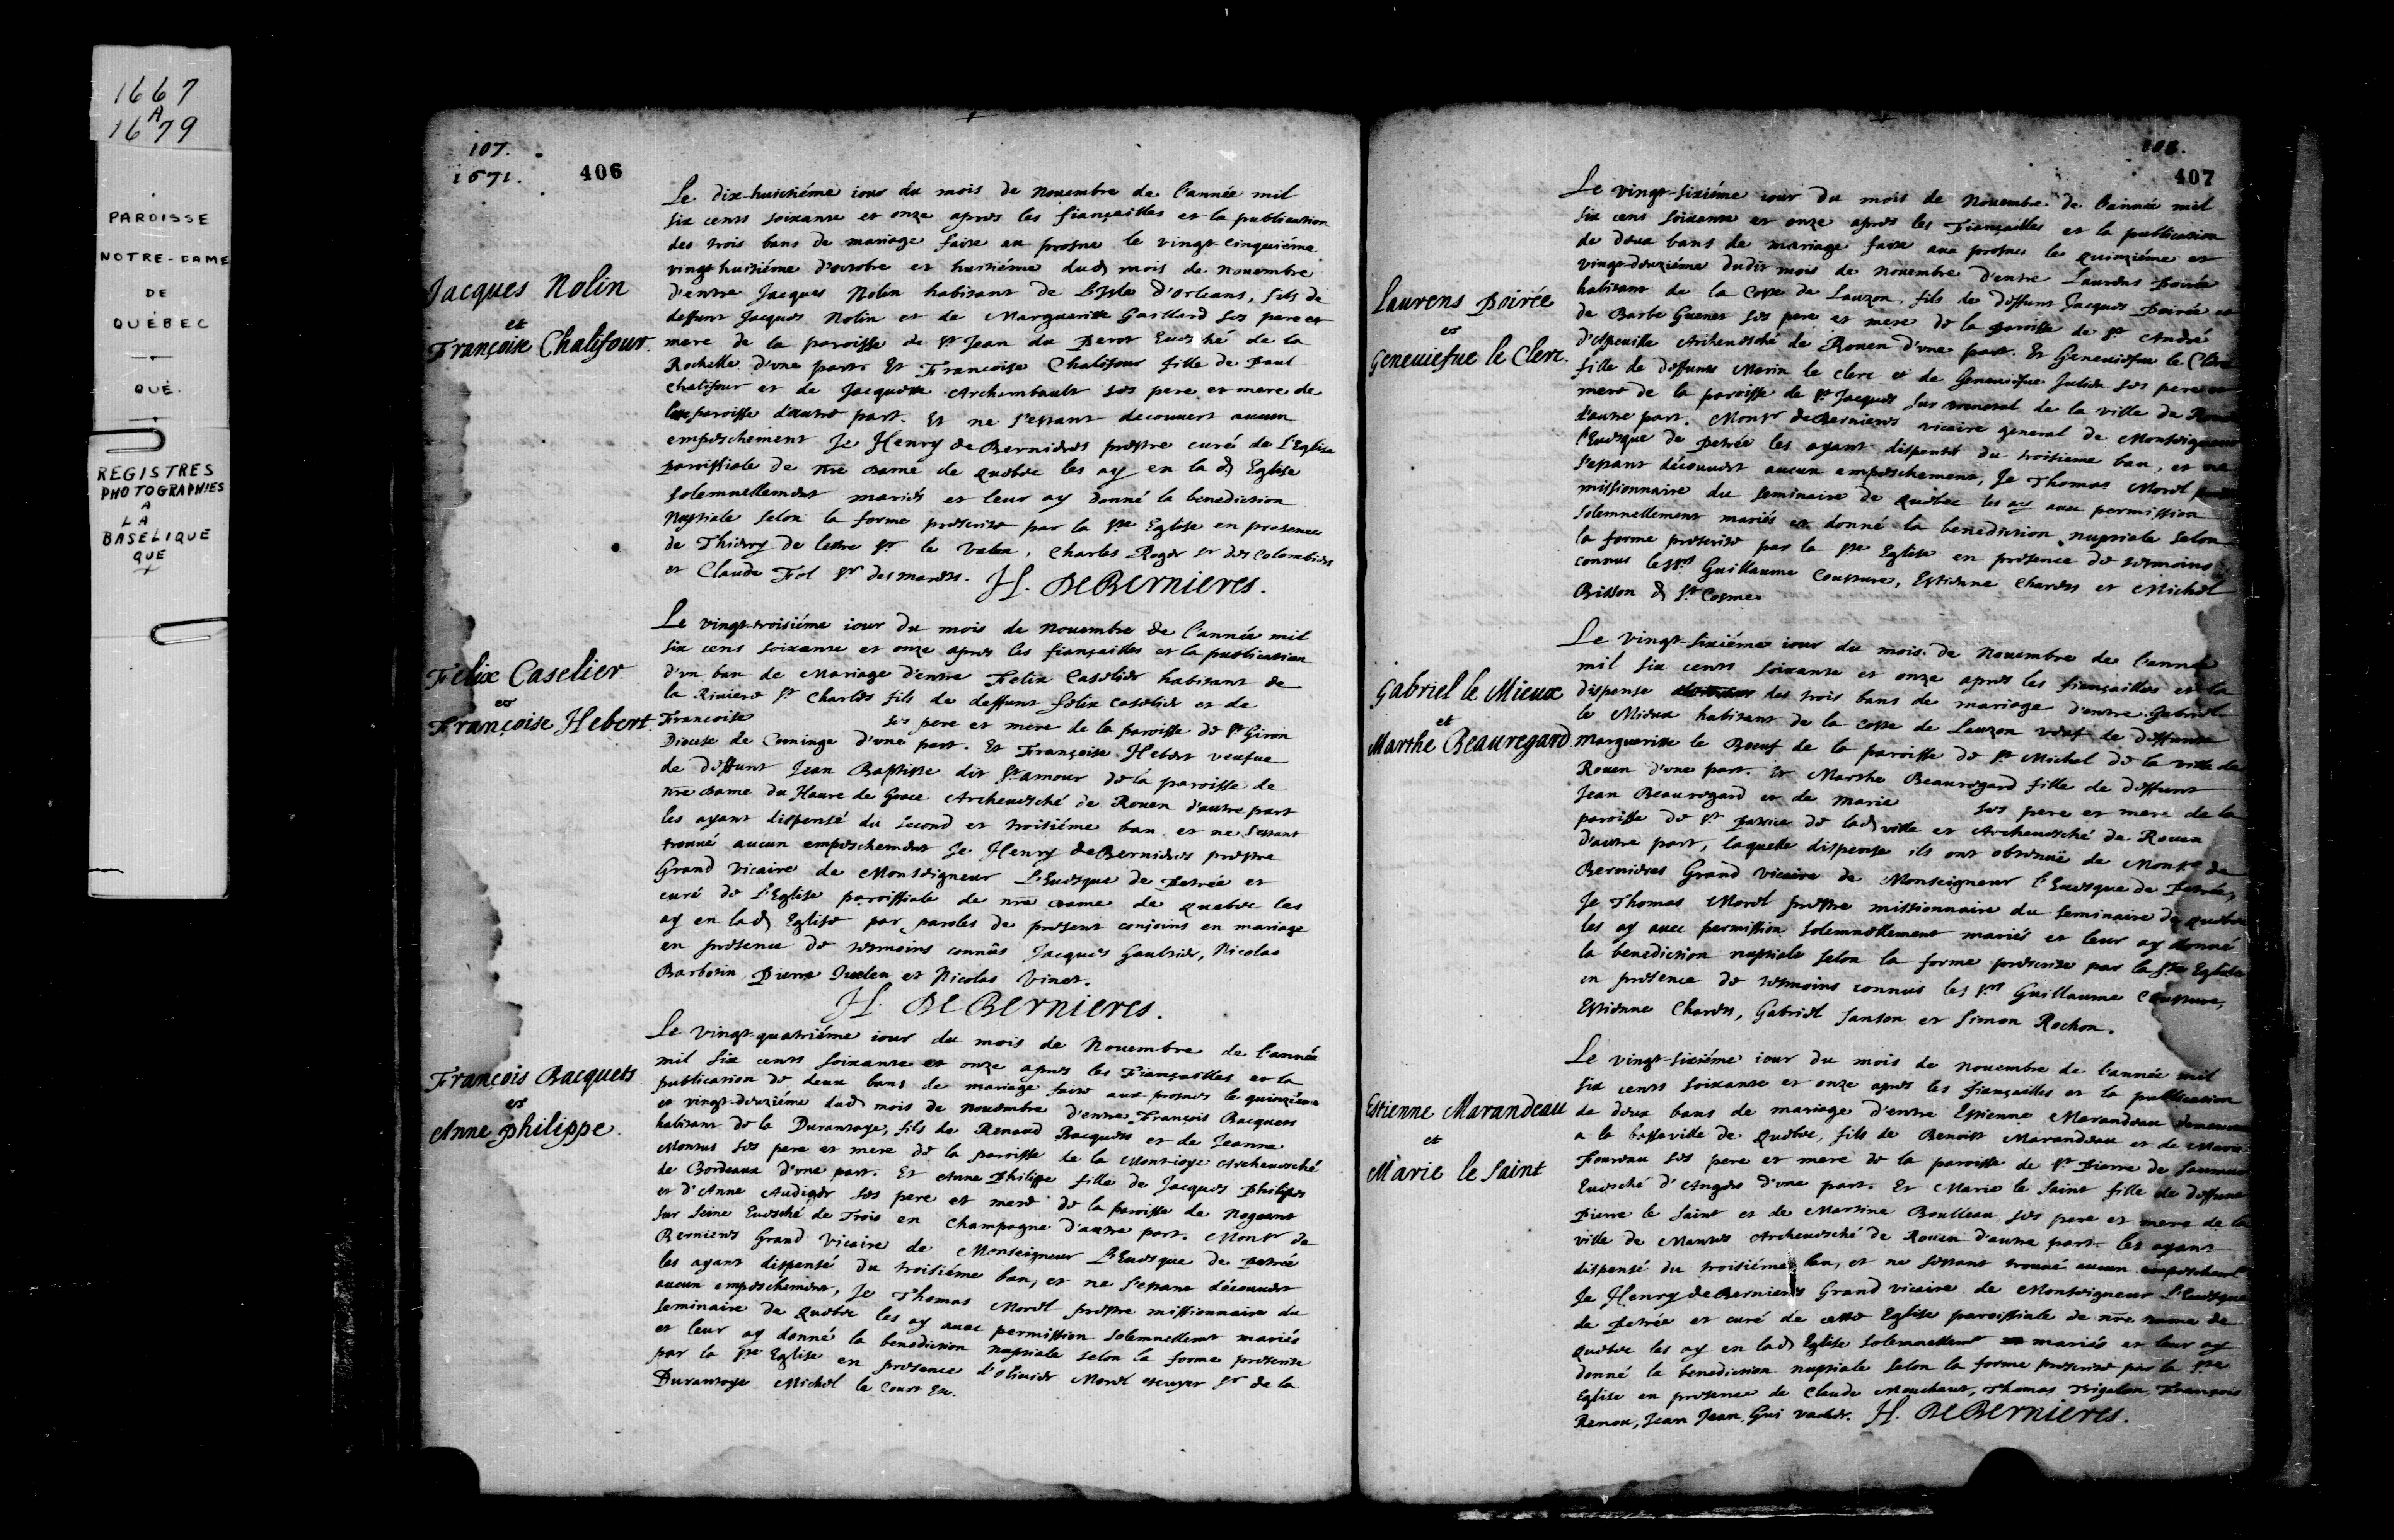 1667
A
1679
PAROISSE
NOTRE-DAME
DE
QUÉBEC
QUÉ.
REGISTRES
PHOTOGRAPHIES
A
LA
BASELIQUE
QUE
107.
1671.
406
Jacques Nolin
et
Françoise Chalifour.
Le dix-huictiéme iour du mois de Nouembre de l'année mil
six cents soixante et onze apres les fiançailles et la publication
des trois bans de mariage faite au prosne le vingt-cinquiéme
vingt huitiéme d'octobre et huitiéme dud mois de nouembre
d'entre Jacques Nolin habitant de L'Isle d'Orleans, fils de
deffunt Jacques Nolin et de Marguerite Gaillard ses pere et
mere de la paroisse de St Jean du Perot Euesché de la
Rochelle d'vne part. Et Francoise Chalifour fille de Paul
Chalifour et de Jacquette Archambault ses pere et mere de
paroisse d'autre part. Et ne s'estant decouuert aucun
empeschement Je Henry de Bernieres prestre curé de l'Eglise
paroissiale de nre Dame de Quebec les ay en la d Eglise
solemnellement mariés et leur ay donné la benediction
Nuptiale selon la forme prescrite par la Ste Eglise en presence
de Thierry de lettre Sr le Valon, Charles Roger Sr des Colombiers
et Claude Fol Sr desmarets. H. DeBernieres.
Felix Caselier
et
Françoise Hebert.
Le vingt-troisiéme iour du mois de Nouembre de l'année mil
six cens soixante et onze apres les fiançailles et la publication
d'vn ban de Mariage d'entre Felix Caselier habitant de
la Riuiere St Charles fils de deffunt Felix Caselier et de
Francoise ses pere et mere de la paroisse de St Giron
Diocese de Cominge d'vne part. Et Françoise Hebert veufue
de deffunt Jean Baptiste dit St Amour de la paroisse de
nre Dame du Haure de Grace Archeuesché de Rouen d'autre part
les ayant dispensé du second et troisiéme ban et ne s'estant
trouué aucun empeschement Je Henry de Bernieres prestre
Grand Vicaire de Monseigneur L'Euesque de Petrée et
curé de L'Eglise paroissiale de nre Dame de Quebec les
ay en lad Eglise par paroles de present conjoins en mariage
en presence de tesmoins connûs Jacques Gaultier, Nicolas
Barbotin Pierre et Nicolas Vinet.
H. DeBernieres.
François Bacquets
et
Anne Philippe.
Le vingt-quatriéme iour du mois de Nouembre de l'année
mil six cents soixante et onze apres les Fiançailles et la
publication de deux bans de mariage faite aux prosnes le quinziéme
et vingt-deuziéme dud mois de nouembre d'entre François Bacquets
habitant de la Durantaye, fils de Renaud Bacquets et de Jeanne
Monnus ses pere et mere de la paroisse de la Montioye Archeuesché
de Bordeaux d'vne part. Et Anne Philippe fille de Jacques Philippes
et d'Anne Audiger ses pere et mere de la paroisse de Nogeant
sur Seine Euesché de Trois en Champagne d'autre part. Monsr de
Bernieres Grand Vicaire de Monseigneur L'Euesque de Petrée
les ayant dispensé du troisiéme ban, et ne s'estant découuert
aucun empeschement, Je Thomas Morel prestre missionnaire du
Seminaire de Quebec les ay auec permission solemnellemt mariés
et leur ay donné la benediction nuptiale selon la forme prescrite
par la Ste Eglise en presence d'Oliuier Morel escuyer Sr de la
Durantaye Michel le Court Etc.
108.
407
Laurens Poirée
et
Geneuiefue le Clerc.
Le vingt-sixiéme iour du mois de Nouembre de l'année mil
six cens soixante et onze apres les Fiançailles et la publication
de deux bans de mariage faite aux prosnes le quinziéme et
vingt-deuziéme dudit mois de nouembre d'entre Laurens Poirée
habitant de la Coste de Lauzon, fils de deffunt Jacques Poirée et
de Barbe Guenet ses pere et mere de la paroisse de St André
Archeuesché de Rouen d'vne part. Et Geneuiefue le Clerc
fille de deffunts Marin le Clerc et de Geneuiefue ses pere et
mere de la paroisse de St Jacques sur de la ville de Rouen
d'autre part. Monsr de Bernieres vicaire general de Monseigneur
l'Euesque de Petrée les ayant dispensé du troisieme ban, et ne
s'estant découuert aucun empeschement, Je Thomas Morel
missionnaire du Seminaire de Quebec les ay auec permission
solemnellement mariés et donné la benediction nuptiale selon
la forme prescrite par la Ste Eglise en presence de tesmoins
connus les Srs Guillaume Cousture, Estienne Charets et Michel
Brisson d St Cosme.
Gabriel le Mieux
et
Marthe Beauregard.
Le vingt-sixiéme iour du mois de Nouembre de l'année
mil six cents soixante et onze apres les fiançailles et la
dispense des trois bans de mariage d'entre Gabriel
le Mieux habitant de la coste de Lauzon veuf de deffunte
Marguerite le Boeuf de la paroisse de St Michel de la ville de
Rouen d'vne part. Et Marthe Beauregard fille de deffunt
Jean Beauregard et de Marie ses pere et mere de la
paroisse de St Patrice de lad ville et Archeuesché de Rouen
d'autre part, laquelle dispense ils ont obtenuë de Monsr de
Bernieres Grand Vicaire de Monseigneur l'Euesque de Petrée,
Je Thomas Morel prestre missionnaire du Seminaire de Quebec
les ay auec permission solemnellement mariés et leur ay donné
la benediction nuptiale selon la forme prescrite par la Ste Eglise
en presence de tesmoins connus les Srs Guillaume Cousture,
Estienne Charets, Gabriel Sanson et Simon Rochon.
Estienne Marandeau
et
Marie le Saint
Le vingt-sixiéme iour du mois de Nouembre de l'année mil
six cents soixante et onze apres les fiançailles et la publication
de deux bans de mariage d'entre Estienne Marandeau demeurant
a la basseville de Quebec, fils de Benoist Marandeau et de Marie
ses pere et mere de la paroisse de St Pierre de Saumur
Euesché d'Angers d'vne part. Et Marie le Saint fille de deffunt
Pierre le Saint et de Martine Boulleau ses pere et mere de la
ville de Mantes Archeuesché de Rouen d'autre part les ayant
dispensé du troisiéme ban, et ne s'estant trouué aucun empeschemt
Je Henry de Bernieres Grand vicaire de Monseigneur L'Euesque
de Petrée et curé de cette Eglise paroissiale de nre Dame de
Quebec les ay en lad Eglise solemnellemt mariés et leur ay
donné la benediction nuptiale selon la forme prescrite par la Ste
Eglise en presence de Claude Mouchaut, Thomas François
Renou, Jean Jean, Gui vacher. H. DeBernieres.